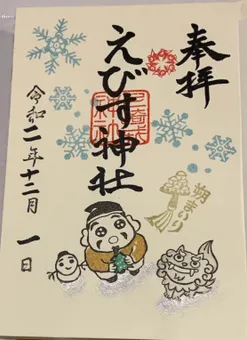 奉拝
えびす神社
令和二年十二月一日
朔まいり